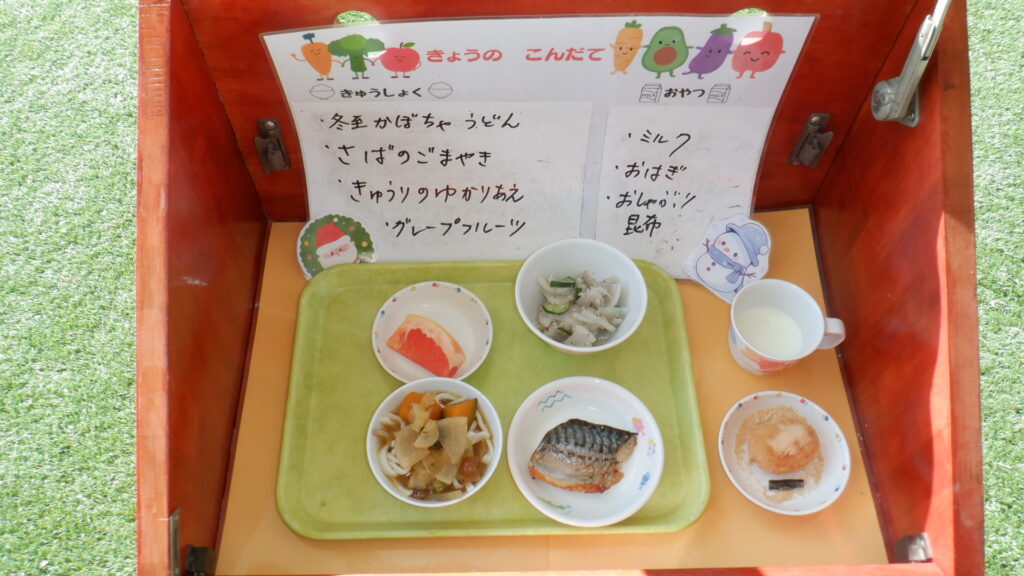 きょうの こんだて
きゅうしょく
・冬至かぼちゃうどん
・さばのごまやき
・きゅうりのゆかりあえ
・グレープフルーツ
おやつ
・ミルク
・おはぎ
・おしゃぶり
昆布